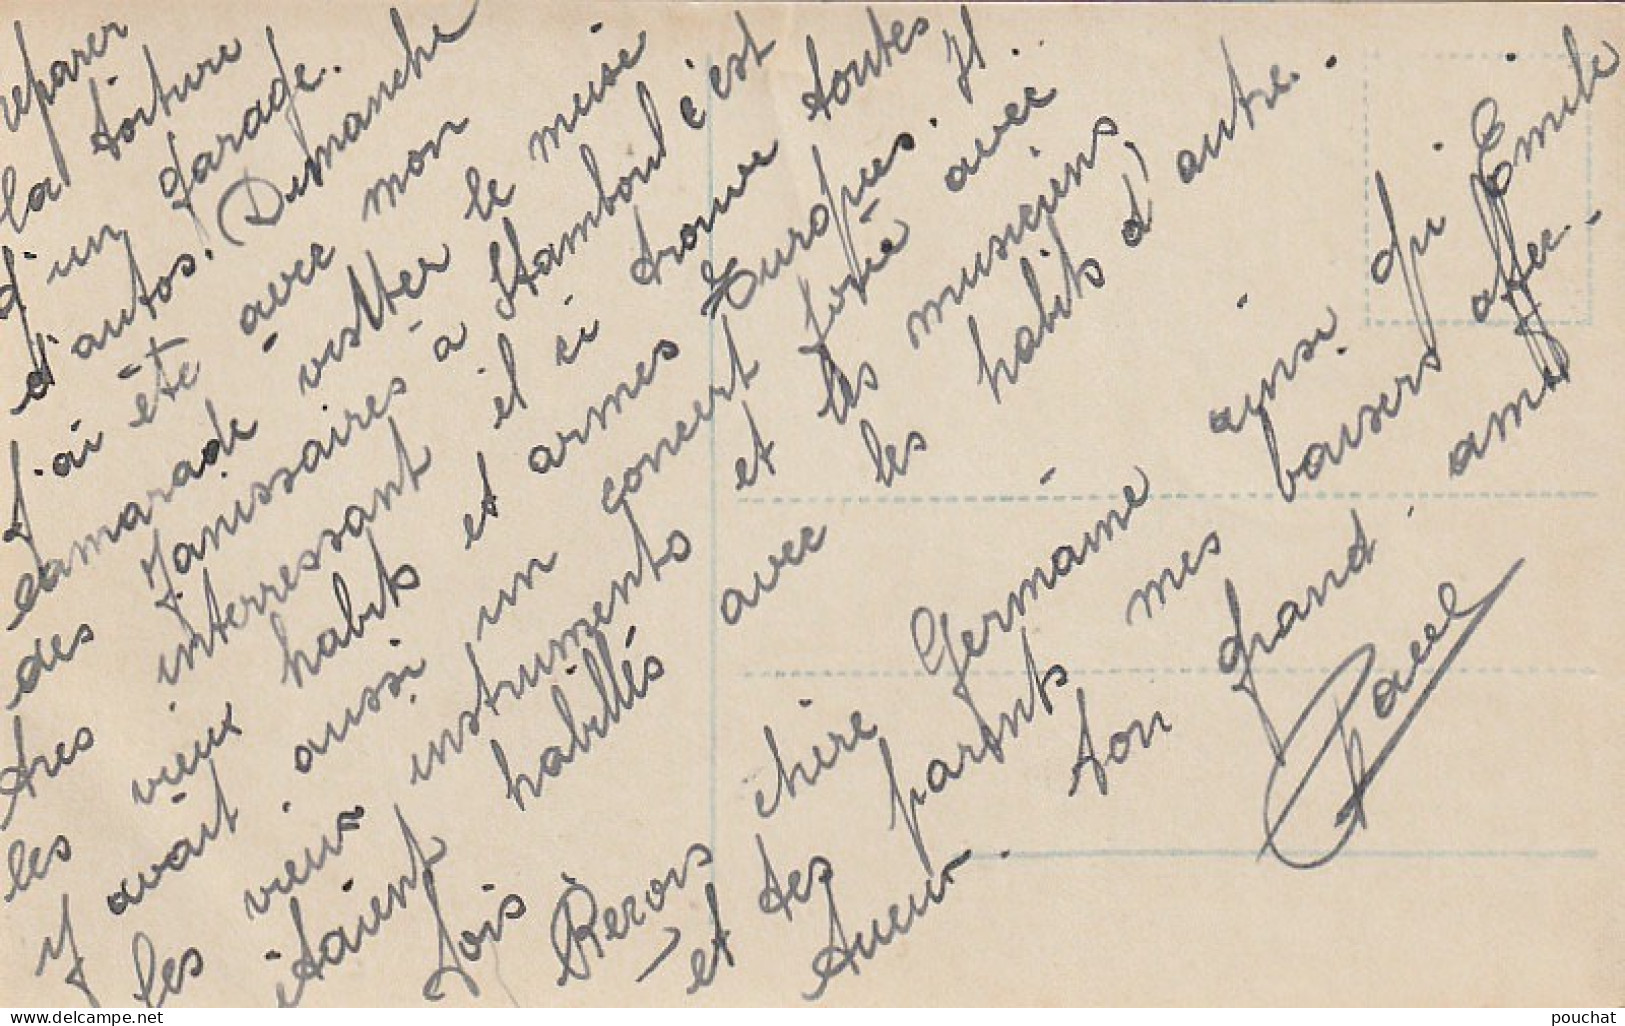 reparer
la toiture
d'un garage.
d'autos. Dimanche
J'ai été avec mon
camarade visiter le musé
des Janissaires à Stamboul c'est
tres interressant il ci trouve toutes
les vieux habits et armes Europées. Il
y avait aussi un concert joué avec
les vieux instruments et les musiciens,
étaient habillés avec les habits d'autre.
fois.
Reçois chère Germaine ainsi qu'Emile
et tes parents mes baisers affec-
tueux. ton grand ami
Paul
pouchat